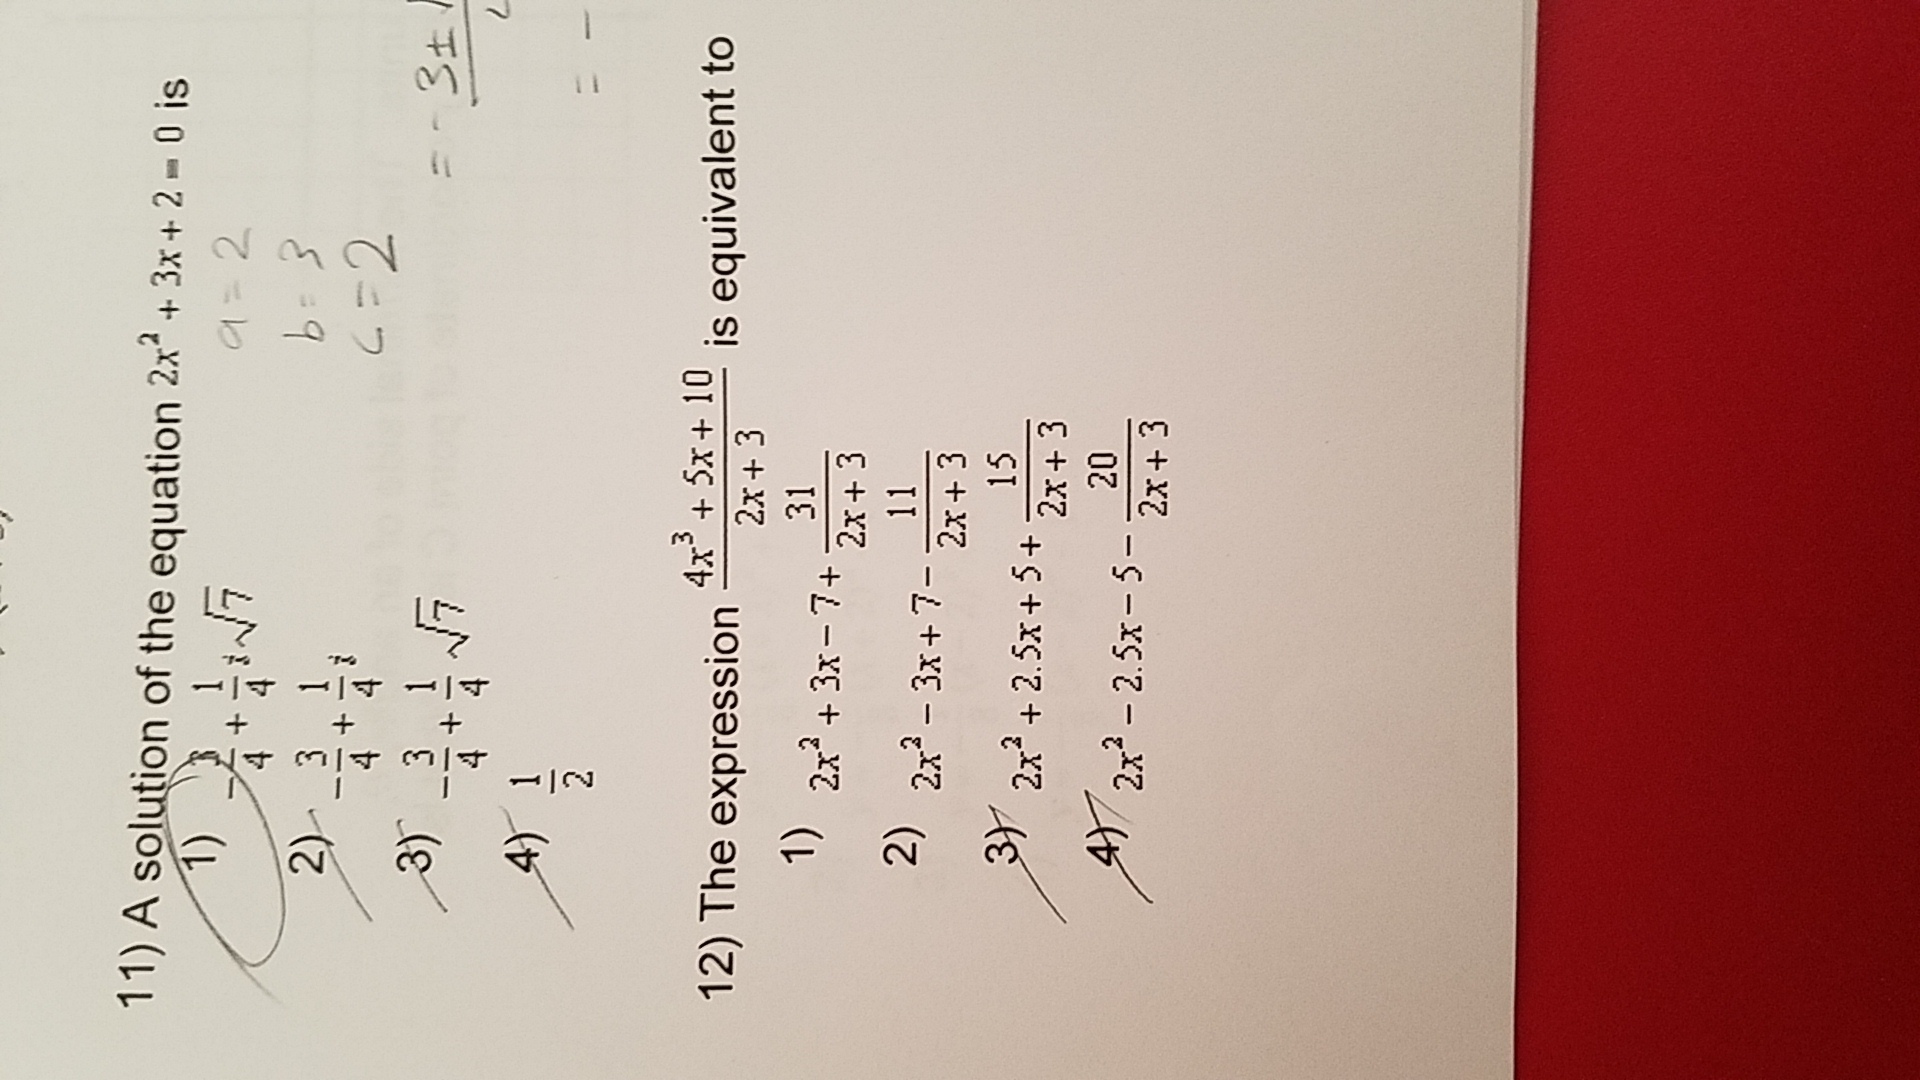 11) A solution of the equation 2x² + 3x + 2 = 0 is
1) -3/4 + 1/4 i√7
a = 2
2) -3/4 + 1/4 i
b = 3
c = 2
3) -3/4 + 1/4 √7
= -3 ±
4) 1/2
= -
12) The expression (4x³ + 5x + 10)/(2x + 3) is equivalent to
1) 2x² + 3x - 7 + 31/(2x + 3)
2) 2x² - 3x + 7 - 11/(2x + 3)
3) 2x² + 2.5x + 5 + 15/(2x + 3)
4) 2x² - 2.5x - 5 - 20/(2x + 3)